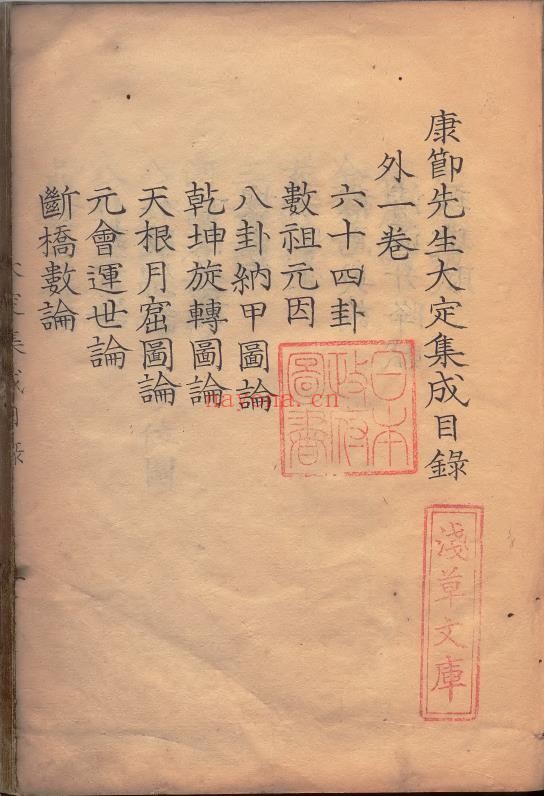 康節先生大定集成目錄
外一卷
六十四卦
數祖元因
八卦納甲圖論
乾坤旋轉圖論
天根月窟圖論
元會運世論
斷橋數論
日本
政府
圖書
淺草文庫